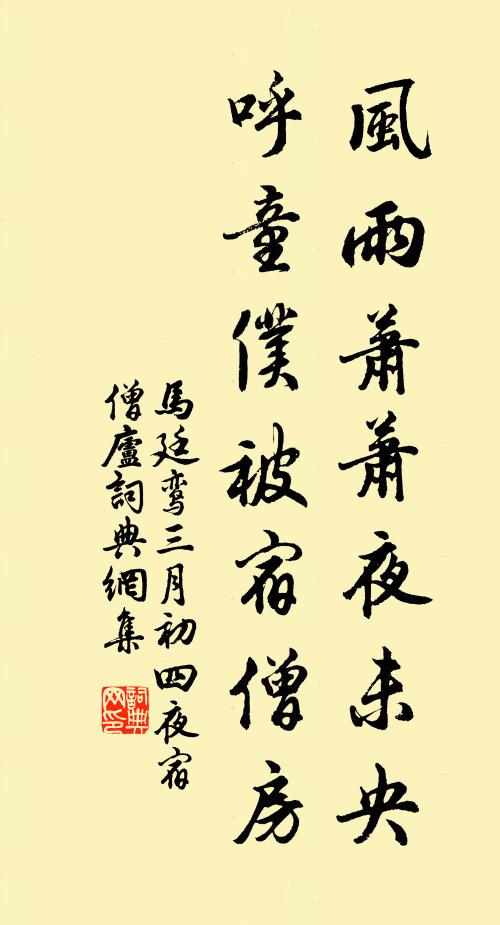 風雨蕭蕭夜未央
呼童僕被宿僧房
馬廷鸾三月初四夜宿
僧廬詞典網集
詞典
网印